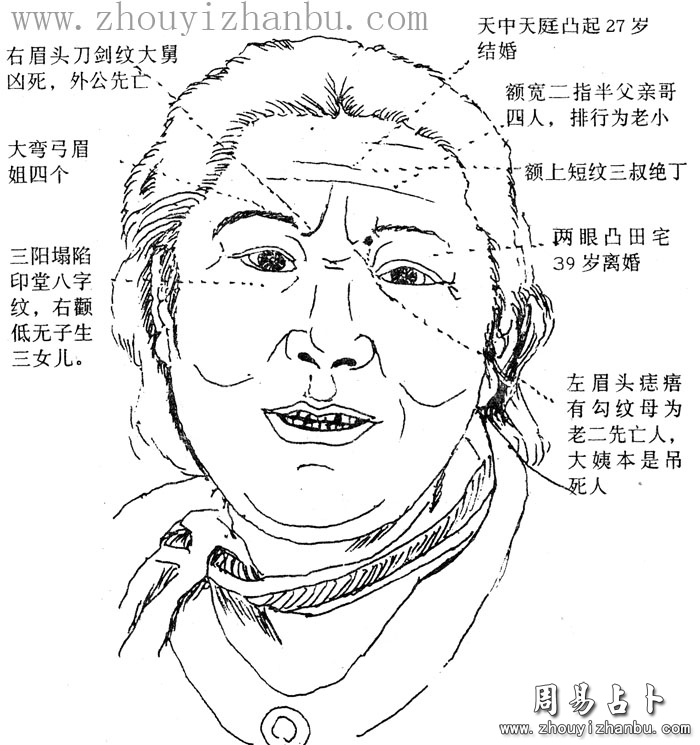 www.zhouyizhanbu.com
右眉头刀剑纹大舅
凶死，外公先亡
大弯弓眉
姐四个
三阳塌陷
印堂八字
纹，右颧
低无子生
三女儿。
天中天庭凸起27岁
结婚
额宽二指半父亲哥
四人，排行为老小
额上短纹三叔绝丁
两眼凸田宅
39岁离婚
左眉头痣瘩
有勾纹母为
老二先亡人，
大姨本是吊
死人
周易占卜
www.zhouyizhanbu.com